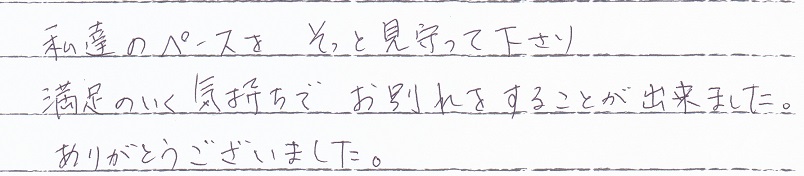 私達のペースを そっと見守って下さり
満足のいく気持ちで お別れをすることが出来ました。
ありがとうございました。